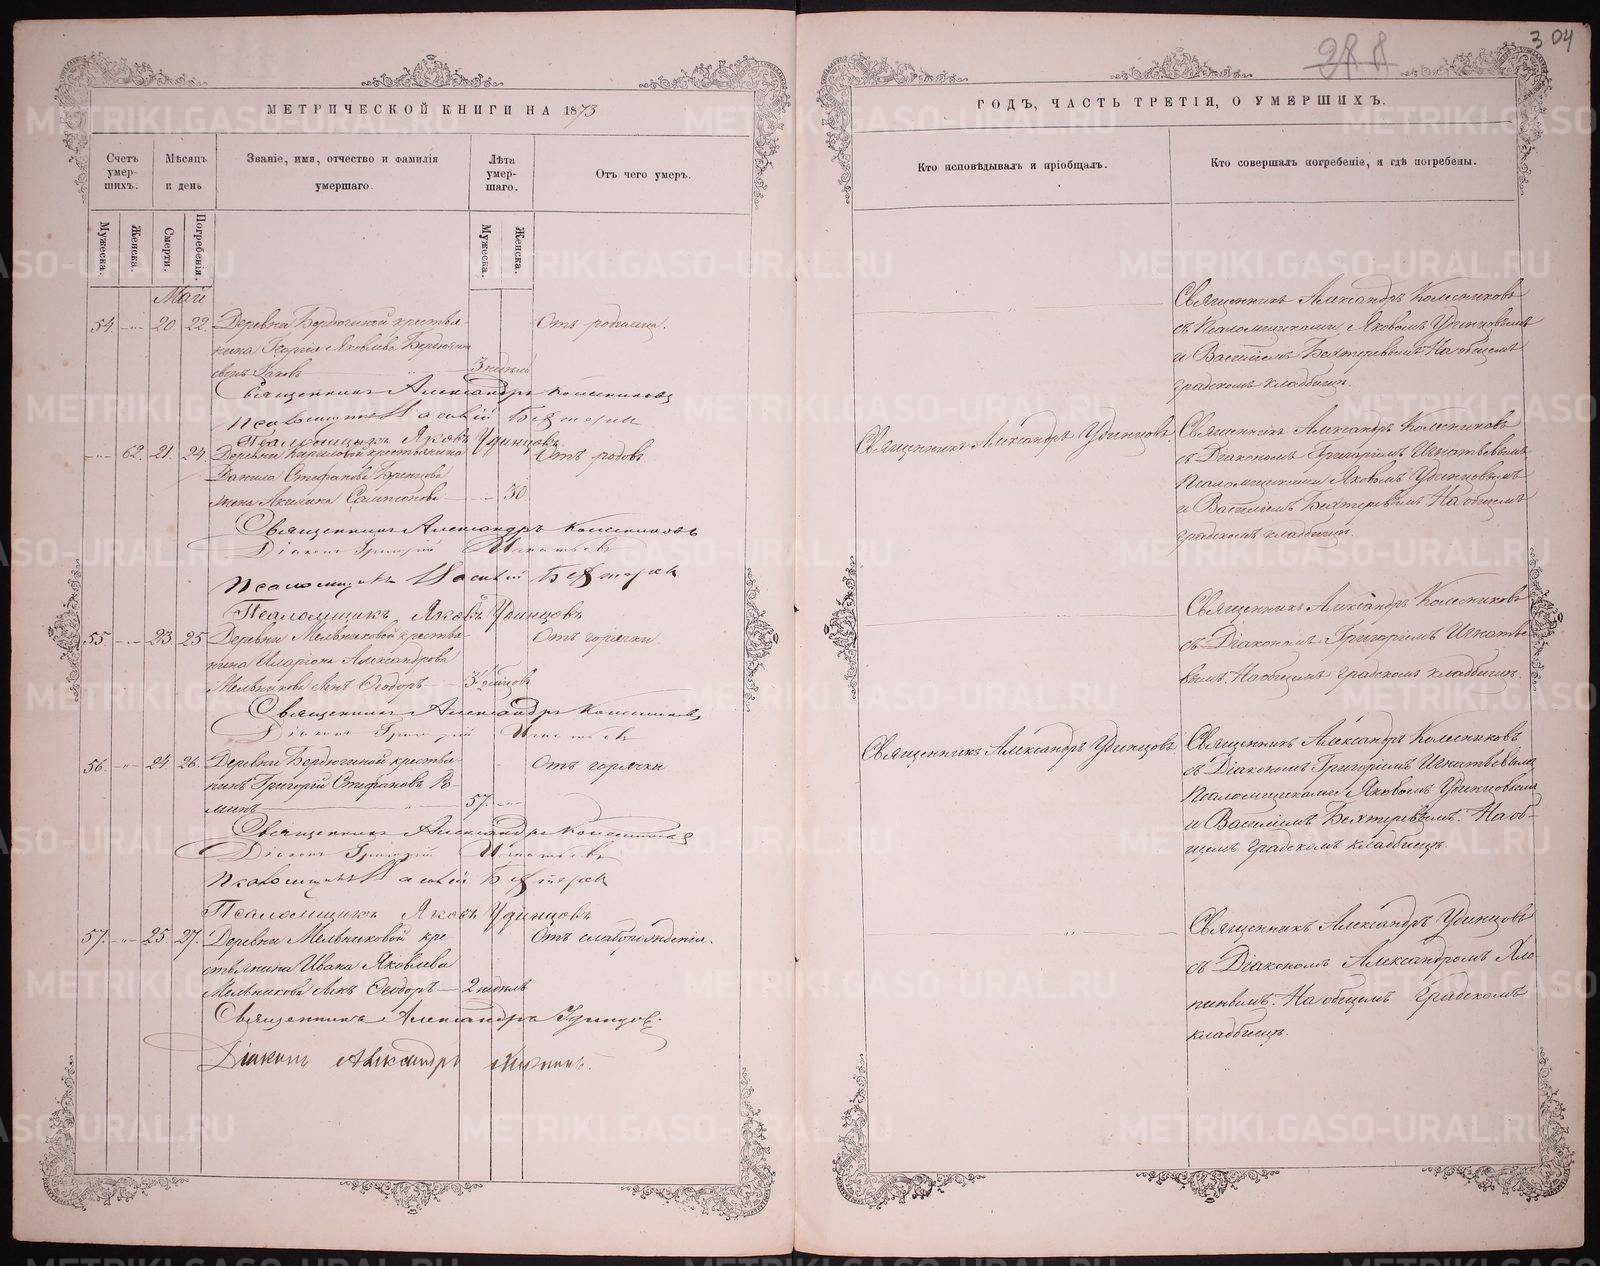 МЕТРИЧЕСКОЙ КНИГИ НА 1873
Счетъ умер-шихъ.
Мѣсяцъ и день
Званіе, имя, отчество и фамилія умершаго.
Лѣта умер-шаго.
Отъ чего умеръ.
Мужеска.
Женска.
Смерти.
Погребенія.
Мужеска.
Женска.
Май
54 20 22 Деревни Бердюгиной крестья- Отъ родимца.
нина Георгія Яковлева Бердюгина
сынъ 3 недѣли
Священникъ Александръ Колесниковъ
Псаломщикъ Василій Бехтерев
Псаломщикъ Яковъ Удинцовъ
62. 21. 24. Деревни Кириловой крестьянина Отъ родовъ.
Данила Стефанова
жена Акилина Сампсонова 30
Священникъ Александръ Колесниковъ
Діаконъ Григорій Игнатьевъ
Псаломщикъ Василій Бехтерев
Псаломщикъ Яковъ Удинцовъ
55 23 25 Деревни Мельниковой крестья- Отъ горячки
нина Иларіона Александрова
Мельникова сынъ Ѳеодоръ
Священникъ Александръ Колесниковъ
Діаконъ Григорій Игнатьевъ
56 24 26. Деревни Бердюгиной крестья- Отъ горячки
нинъ Григорій Стефановъ Ро-
минъ 57.
Священникъ Александръ Колесниковъ
Діаконъ Григорій Игнатьевъ
Псаломщикъ Василій Бехтерев
Псаломщикъ Яковъ Удинцовъ
57. 25. 27. Деревни Мельниковой кре- Отъ слаборожденія.
стьянина Ивана Яковлева
Мельникова сынъ Ѳеодоръ 2 недѣль
Священникъ Александръ Удинцовъ.
Діаконъ Александръ
304
ГОДЪ, ЧАСТЬ ТРЕТІЯ, О УМЕРШИХЪ.
Кто исповѣдывалъ и пріобщалъ.
Кто совершалъ погребеніе, и гдѣ погребены.
Священникъ Александръ Колесниковъ
съ Псаломщиками Яковомъ Удинцовымъ
и Василіемъ Бехтеревымъ. На общемъ
градскомъ кладбищѣ.
Священникъ Александръ Удинцовъ.
Священникъ Александръ Колесниковъ
съ Діакономъ Григоріемъ Игнатьевымъ
Псаломщиками Яковомъ Удинцовымъ
и Василіемъ Бехтеревымъ На общемъ
градскомъ кладбищѣ.
Священникъ Александръ Колесниковъ
съ Діакономъ Григоріемъ Игнатье-
вымъ. На общемъ градскомъ кладбищѣ.
Священникъ Александръ Удинцовъ
Священникъ Александръ Колесниковъ
съ Діакономъ Григоріемъ Игнатьевымъ
Псаломщиками Яковомъ Удинцовымъ
и Василіемъ Бехтеревымъ. На об-
щемъ градскомъ кладбищѣ.
Священникъ Александръ Удинцовъ
съ Діакономъ Александромъ Хло-
пинымъ. На общемъ градскомъ
кладбищѣ.
METRIKI.GASO-URAL.RU